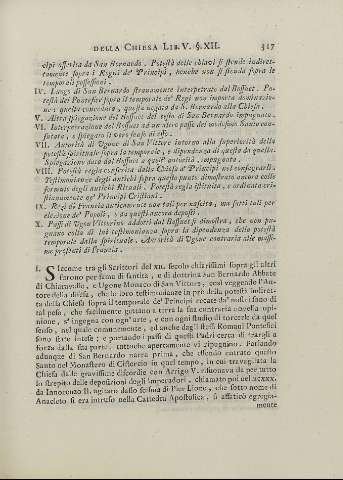 DELLA CHIESA LIB. V. §. XII. 317
cipi asserita da San Bernardo. Potestà delle chiavi si stende indiret-
tamente sopra i Regni de' Principi, benchè non si stenda sopra le
terrene possessioni.
IV. Luogo di San Bernardo stranamente interpretato dal Bossuet. Po-
testà dei Pontefici sopra il temporale de' Regi non importa dominazio-
ne: questa conceduta, quella negata da S. Bernardo alla Chiesa.
V. Altra spiegazione del Bossuet del testo di San Bernardo impugnata.
VI. Interpretazione del Bossuet ad un altro passo del medesimo Santo con-
futata, e spiegato il vero senso di esso.
VII. Autorità di Ugone di San Vittore intorno alla superiorità della
potestà spirituale sopra la temporale, e dipendenza di questa da quella.
Spiegazione data dal Bossuet a quest' autorità, impugnata.
VIII. Potestà regia conferita dalla Chiesa a' Principi nel consagrarli.
Testimonianze degli antichi sopra questo punto dimostrate vere e colle
formole degli antichi Rituali. Potestà regia istituita, e ordinata cri-
stianamente ne' Principi Cristiani.
IX. Regi di Francia anticamente non tali per nascita, ma fatti tali per
elezione de' Popoli, e da questi ancora deposti.
X. Passi di Ugon Vittorino addotti dal Bossuet si dimostra, che non pu-
gnano colla di lui testimonianza sopra la dipendenza della potestà
temporale dalla spirituale. Autorità di Ugone contraria alle massi-
me presenti di Francia.
I. SIccome tra gli Scrittori del XII. secolo chiarissimi sopra gli altri
furono per fama di santità, e di dottrina San Bernardo Abbate
di Chiaravalle, e Ugone Monaco di San Vittore, così veggendo l'Au-
tore della difesa, che le loro testimonianze in prò della potestà indiret-
ta della Chiesa sopra il temporale de' Principi recate da' nostri sono di
tal peso, che facilmente gettano a terra la sua contraria novella opi-
nione, s' ingegna con ogn' arte, e con ogni studio di torcerle da quel
senso, nel quale comunemente, ed anche dagli stessi Romani Pontefici
sono state intese; e portando i passi di questi Padri cerca di trargli a
forza dalla sua parte, tuttochè apertamente vi ripugnino. Parlando
adunque di San Bernardo narra prima, che essendo entrato questo
Santo nel Monastero di Cistercio in quel tempo, in cui travagliata la
Chiesa da le gravissime discordie con Arrigo V. risuonava da per tutto
lo strepito delle deposizioni degli Imperadori, chiamato poi nel MCXXX.
da Innocenzo II. agitato dallo scisma di Pier Lione, che sotto nome di
Anacleto si era intruso nella Cattedra Apostolica, si affaticò egregia-
mente